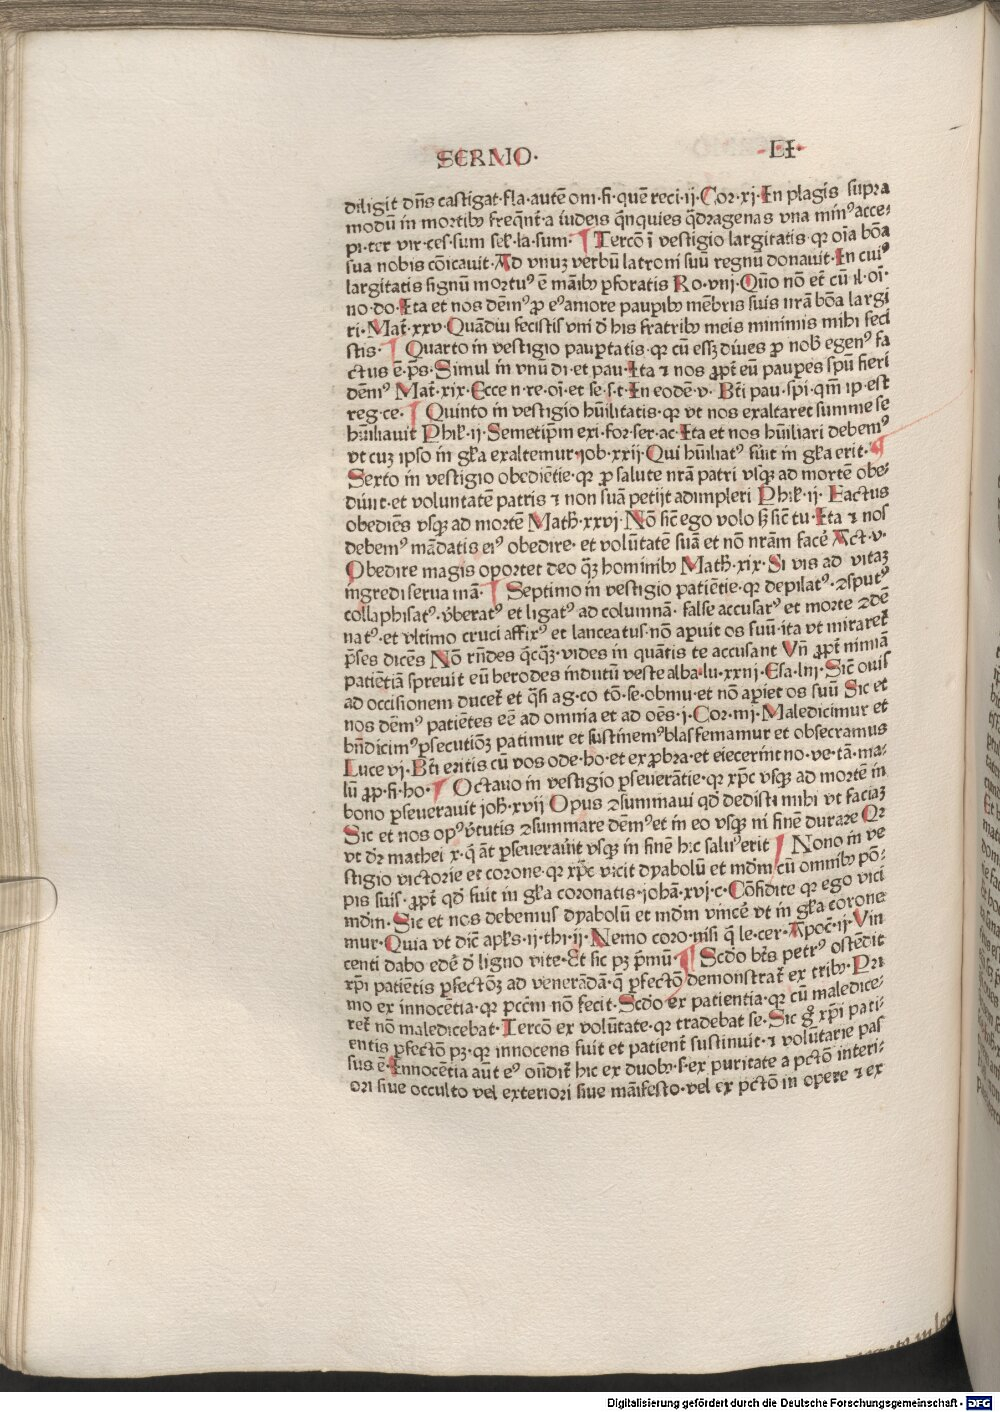 SERMO· LI·
diligit dn̄s castigat·fla·autē om·fi·quē reci·ij·Cor·xj·In plagis supra
modū in mortibꝫ freq̄nt̄·a iudeis q̄nquies q̄dragenas vna minꝰ acce-
pi·ter vir·ces·sum sel̄·la·sum· ¶ Tercō ī vestigio largitatis·qꝛ oīa bōa
sua nobis cōicauit·Ad vnuꝫ verbū latroni suū regnū donauit·In cuiꝰ
largitatis signū mortuꝰ ē māibꝫ ꝑforatis Ro·vnj·Quō nō et̄ cū il·oī·
no·do·Ita et nos dēmꝰ ꝓ eꝰ amore paupibꝫ mēbris suis nrā bōa largi
ri·Mat̄·xxv·Quādiu fecistis vni d̄ his fratribꝫ meis minimis mihi feci
stis· ¶ Quarto in vestigio paupertatis·qꝛ cū essꝫ diues ꝓ nob̄ egenꝰ fa
ctus ē·p̄s·Simul in vnū di·et pau·Ita ⁊ nos ꝓpt̄ eū paupes spū fieri
dēmꝰ Mat̄·xix·Ecce n·re·oī·et se·s·t·In eodē·v·Bt̄i pau·spī·qm̄ ip·est
reg·ce· ¶ Quinto in vestigio hūilitatis·qꝛ vt nos exaltaret summe se
hūiliauit Phil̄·ij·Semetip̄m exi·for·ser·ac·Ita et nos hūiliari debemꝰ
vt cuꝫ ipso in gl̄a exaltemur·Job·xxij·Qui hūiliatꝰ fūit in gl̄a erit· ¶
Sexto in vestigio obediētie·qꝛ ꝓ salute nrā patri vsqꝫ ad mortē obe-
diuit·et voluntatē patris ⁊ non suā petijt adimpleri Phil̄·ij·Factus
obediēs vsqꝫ ad mortē Math̄·xxvj·Nō sic̄ ego volo sꝫ sic̄ tu·Ita ⁊ nos
debemꝰ mādatis eiꝰ obedire·et volūtatē suā et nō nrām face᷑ Act·v·
Obedire magis oportet deo q̄ꝫ hominibꝫ Math̄·xix·Si vis ad vitaꝫ
ingredi serua mā· ¶ Septimo in vestigio patiētie·qꝛ depilatꝰ·ꝯsputꝰ
collaphisatꝰ·v̄beratꝰ et ligatꝰ ad columnā·false accusatꝰ et morte ꝯdē
natꝰ·et vltimo cruci affixꝰ et lanceatus·nō apuit os suū·ita vt miraret̄
p̄ses dicēs Nō rn̄des q̄cq̄ꝫ·vides in quātis te accusant Vn̄ ꝓpt̄ nimiā
patiētiā spreuit eū herodes indutū veste alba·lu·xxnj·Esa·lnj·Sic̄ ouis
ad occisionem ducet̄ et q̄si ag·co tō·se·obmu·et nō aꝑiet os suū Sic et
nos dēmꝰ patiētes ee᷑ ad omnia et ad oēs·j·Cor·mj·Maledicimur et
bn̄dicimꝰ ꝑsecutiōꝫ patimur et sustinemꝰ blasfemamur et obsecramus
Luce vj·Bt̄i eritis cū vos ode·ho·et ex ꝓbra·et eiecerint no·ve·tā·ma-
lū ꝓp·fi·ho· ¶ Octauo in vestigio ꝑseuerātie·qꝛ xp̄c vsqꝫ ad mortē in
bono ꝑseuerauit joh̄·xvij Opus ꝯsummaui qd̄ dedisti mihi vt faciaꝫ
Sic et nos opꝰ v̄tutis ꝯsummare dēmꝰ et in eo vsqꝫ ni finē durare Qꝛ
vt dr̄ mathei x·q̄ āt ꝑseuerauit vsqꝫ in finē hic saluꝰ erit ¶ Nono in ve
stigio victorie et corone·qꝛ xp̄c vicit dyabolū et mdm̄ cū omnibꝫ pō-
pis suis·ꝓpt̄ qd̄ fuit in gl̄a coronatis·johā·xvj·c·Cōfidite qꝛ ego vici
mdm̄·Sic et nos debemus dyabolū et mdm̄ vince᷑ vt in gl̄a corone
mur·Quia vt dic̄ apl̄s·ij·thi·ij·Nemo coro·nisi q̄ le·cer·Apoc̄·ij·Vin
centi dabo edē d̄ ligno vite·Et sic pꝫ p̄mū ¶ Scd̄o bt̄s petrꝰ ostēdit
xp̄i patiētis ꝑfectōꝫ ad venerādā·q̄ ꝑfectō demonstrat̄ ex tribꝫ·Pri
mo ex innocētia·qꝛ pcc̄m nō fecit·Scd̄o ex patientia·qꝛ cū maledice-
ret̄ nō maledicebat·Tercō ex volūtate·qꝛ tradebat se·Sic g̊ xp̄i pati-
entis ꝑfectō pꝫ·qꝛ innocens fuit et patient̄ sustinuit·⁊ volūtarie pas
sus ē·Innocētia aūt eꝰ on̄dit̄ hic ex duobꝫ·s·ex puritate a pctō interi-
ori siue occulto vel exteriori siue māifesto·vel ex pctō in opere ⁊ ex
Digitalisierung gefördert durch die Deutsche Forschungsgemeinschaft - DFG